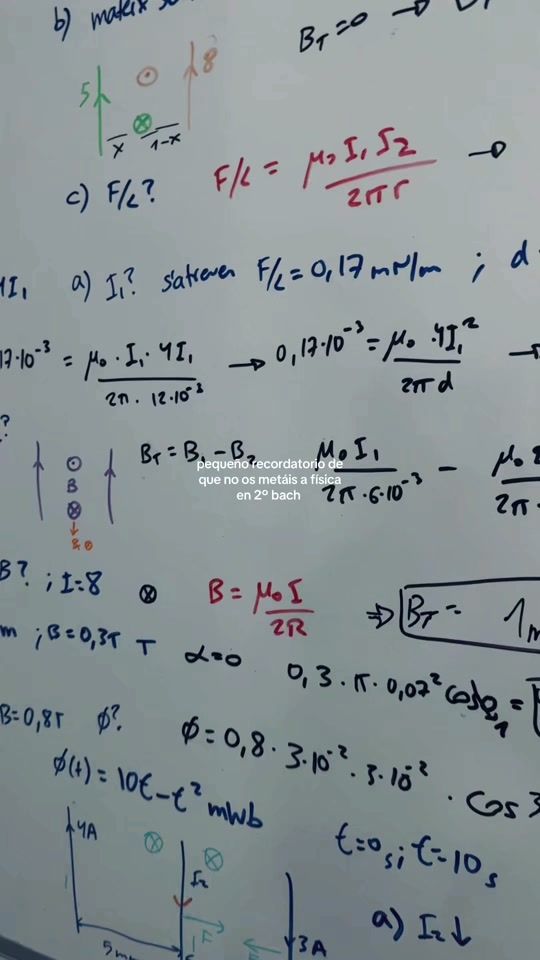 b) matrix
B_T=0 →
5 8
x 1-x
c) F/L? F/L = μ₀ I₁ I₂ / 2πr →
a) I₁? s'atreuen F/L = 0,17 mN/m ; d
17·10⁻³ = μ₀ · I₁ · 4I₁ / 2π · 12·10⁻³ → 0,17·10⁻³ = μ₀ · 4I₁² / 2πd →
?
B
B_T = B₁ - B₂ μ₀ I₁ / 2π·6·10⁻³ - μ₀ / 2π·
pequeño recordatorio de
que no os metáis a física
en 2º bach
B? ; I=8 ⊗ B = μ₀ I / 2R ⇒ B_T = 1
m ; B=0,3T T α=0 0,3 · π · 0,07² cos 0 =
1
B=0,8T ϕ? ϕ = 0,8 · 3·10⁻² · 3·10⁻² · cos 3
ϕ(t) = 10t - t² mWb
t=0 s ; t=10 s
4A
I₂
F
5 mm
3A
a) I₂ ↓